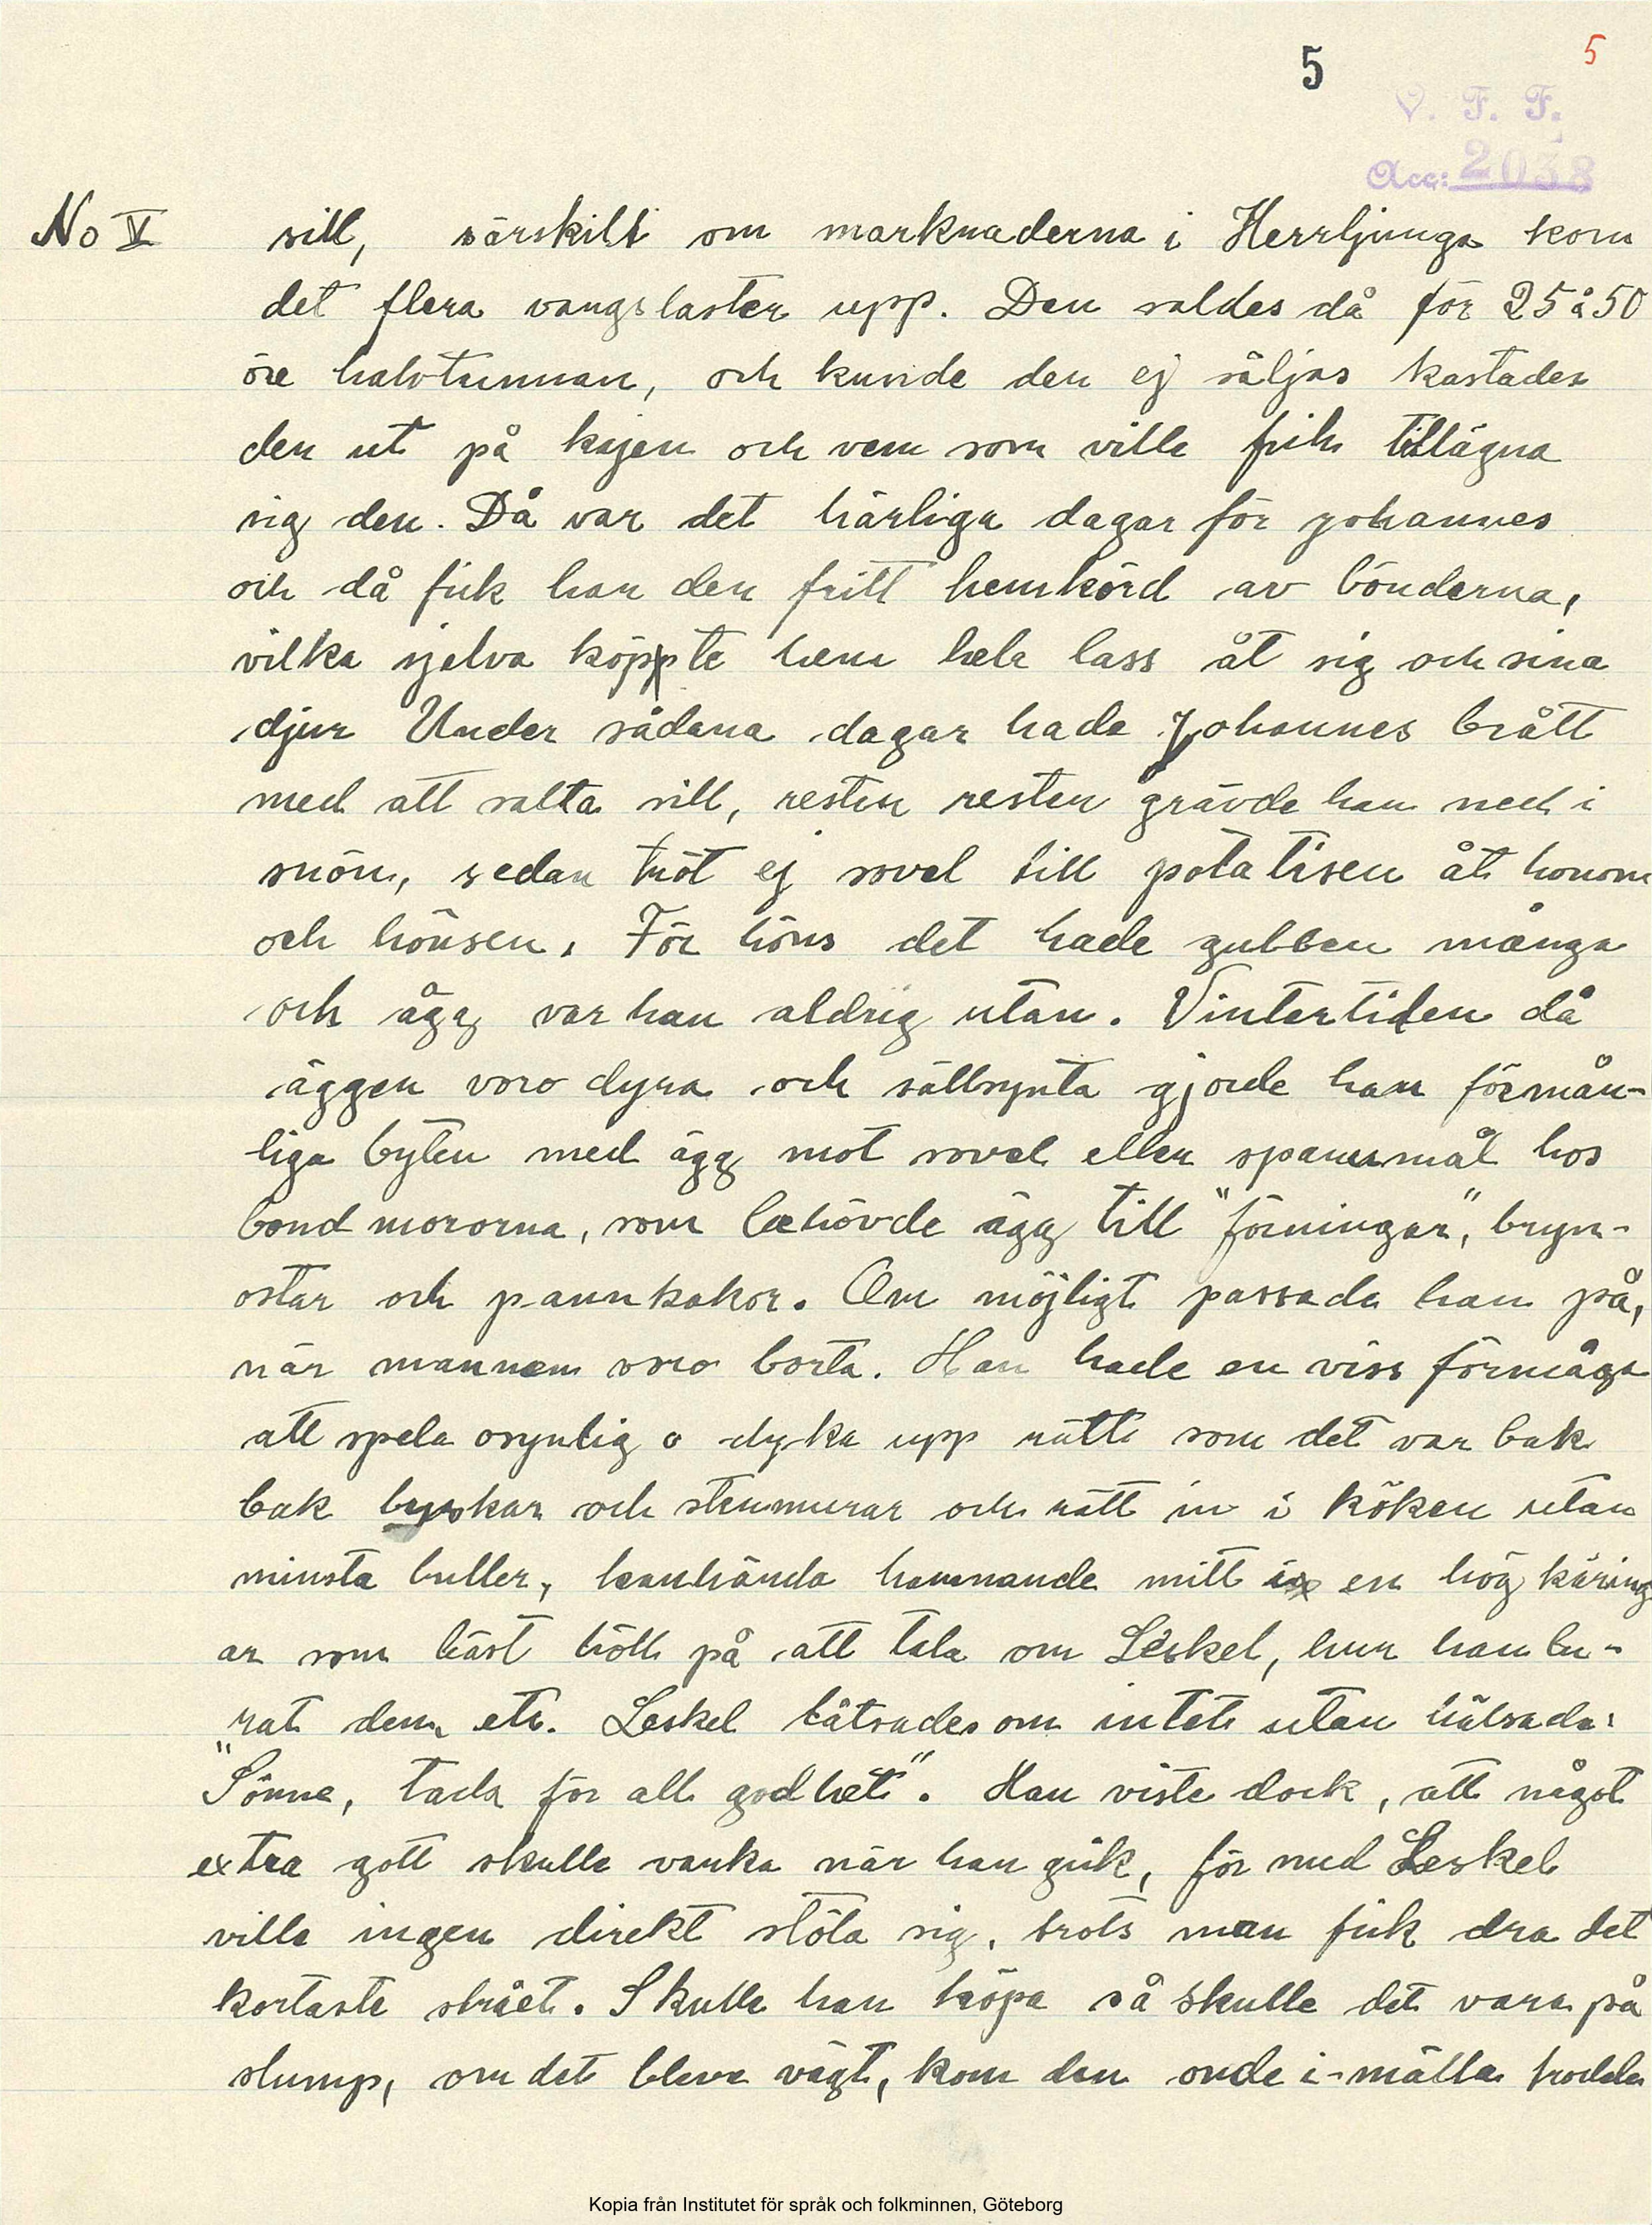 5
5
V. F. F.
Acc: 2038
No V
sill, särskilt om marknaderna i Herrljunga kom
det flera vangslaster upp. Den saldes då för 25 à 50
öre halvtunnan, och kunde den ej säljas kastades
den ut på kajen och vem som ville fick tillägna
sig den. Då var det härliga dagar för johannes
och då fick han den fritt hemkörd av bönderna,
vilka sjelva köppte hem hela lass åt sig och sina
djur Under sådana dagar hade Johannes brått
med att salta sill, resten resten grävde han ned i
snön, sedan tröt ej sovel till potatisen åt honom
och hönsen. För höns det hade gubben många
och ägg var han aldrig utan. Vintertiden då
äggen voro dyra och sällsynta gjorde han förmån-
liga byten med ägg mot sovel eller spannmål hos
bondmororna, som behövde ägg till "förningar", bryn-
ostar och pannkakor. Om möjligt passade han på,
när mannen voro borta. Han hade en viss förmåga
att spela osynlig o dyka upp rätt som det var bak
bak byskar och stenmurar och rätt in i köken utan
minsta buller, kanhända hamnande mitt i en hög käring
ar som bäst höll på att tala om Leskel, hur han lu-
rat dem etc. Leskel låtsades om intet utan hälsade:
"Sönne, tack för all godhet". Han viste dock, att något
extra gott skulle vanka när han gick, för med Leskel
ville ingen direkt stöta sig, trots man fick dra det
kortaste strået. Skulle han köpa så skulle det vara på
slump, om det bleve vägt, kom den onde i-mälla trodde
Kopia från Institutet för språk och folkminnen, Göteborg